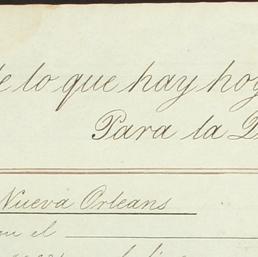 de lo que hay hoy
Para la
Nueva Orleans
en el